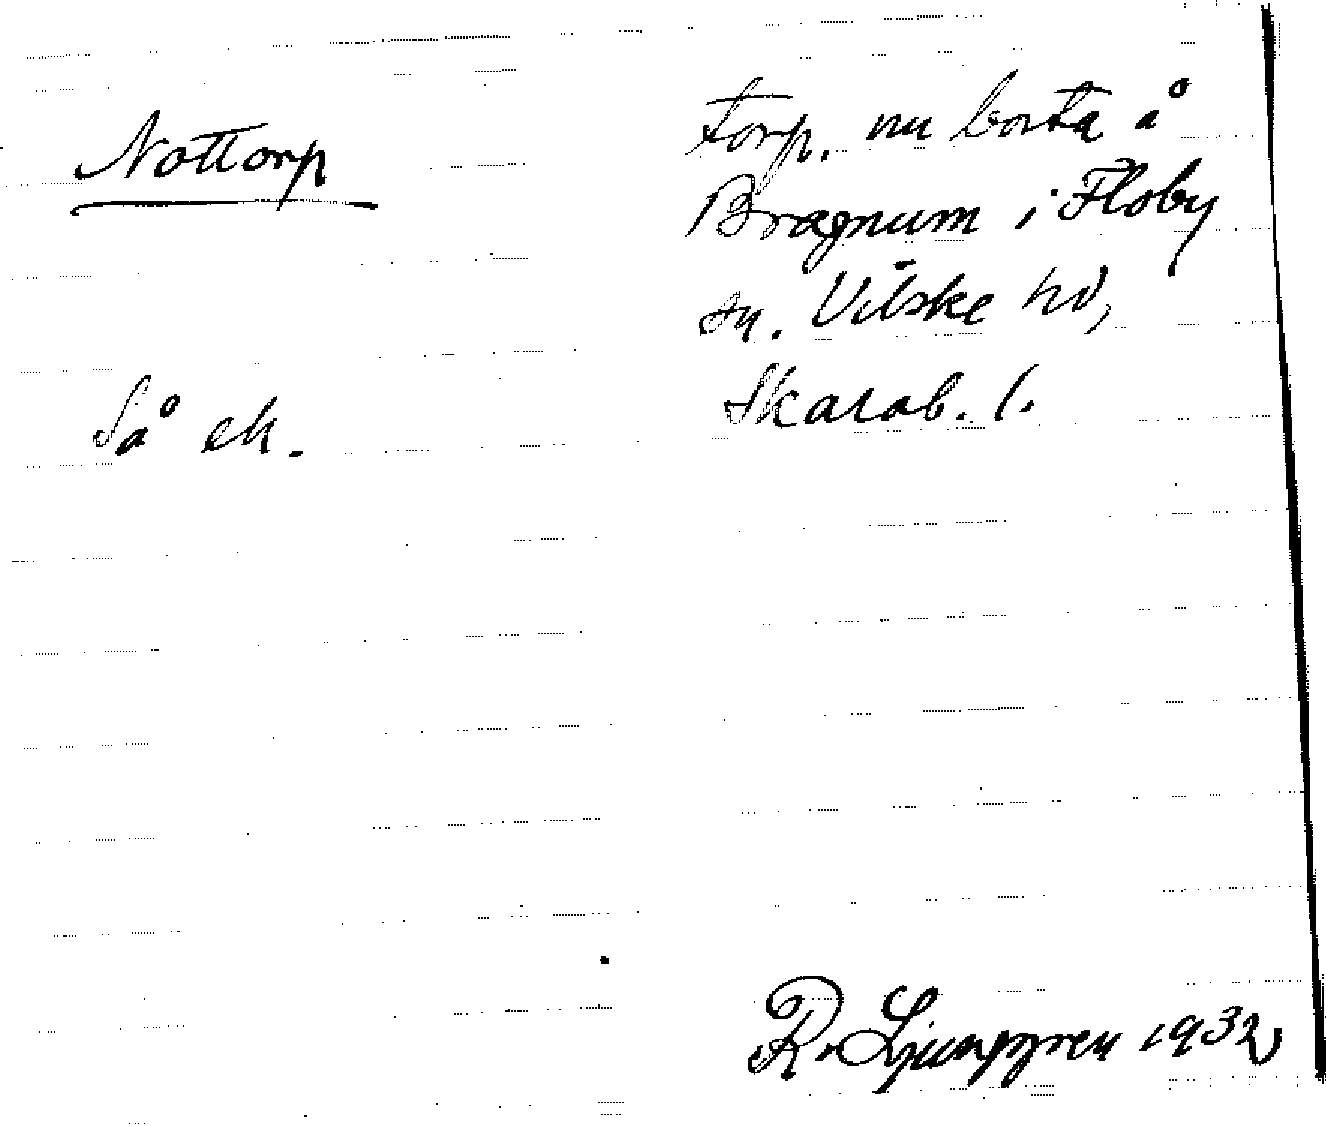 Nottorp
torp. nu borta å
Bragnum i Floby
sn. Vilske hd,
Skarab. l.
Så ek.
R. Ljunggren 1932